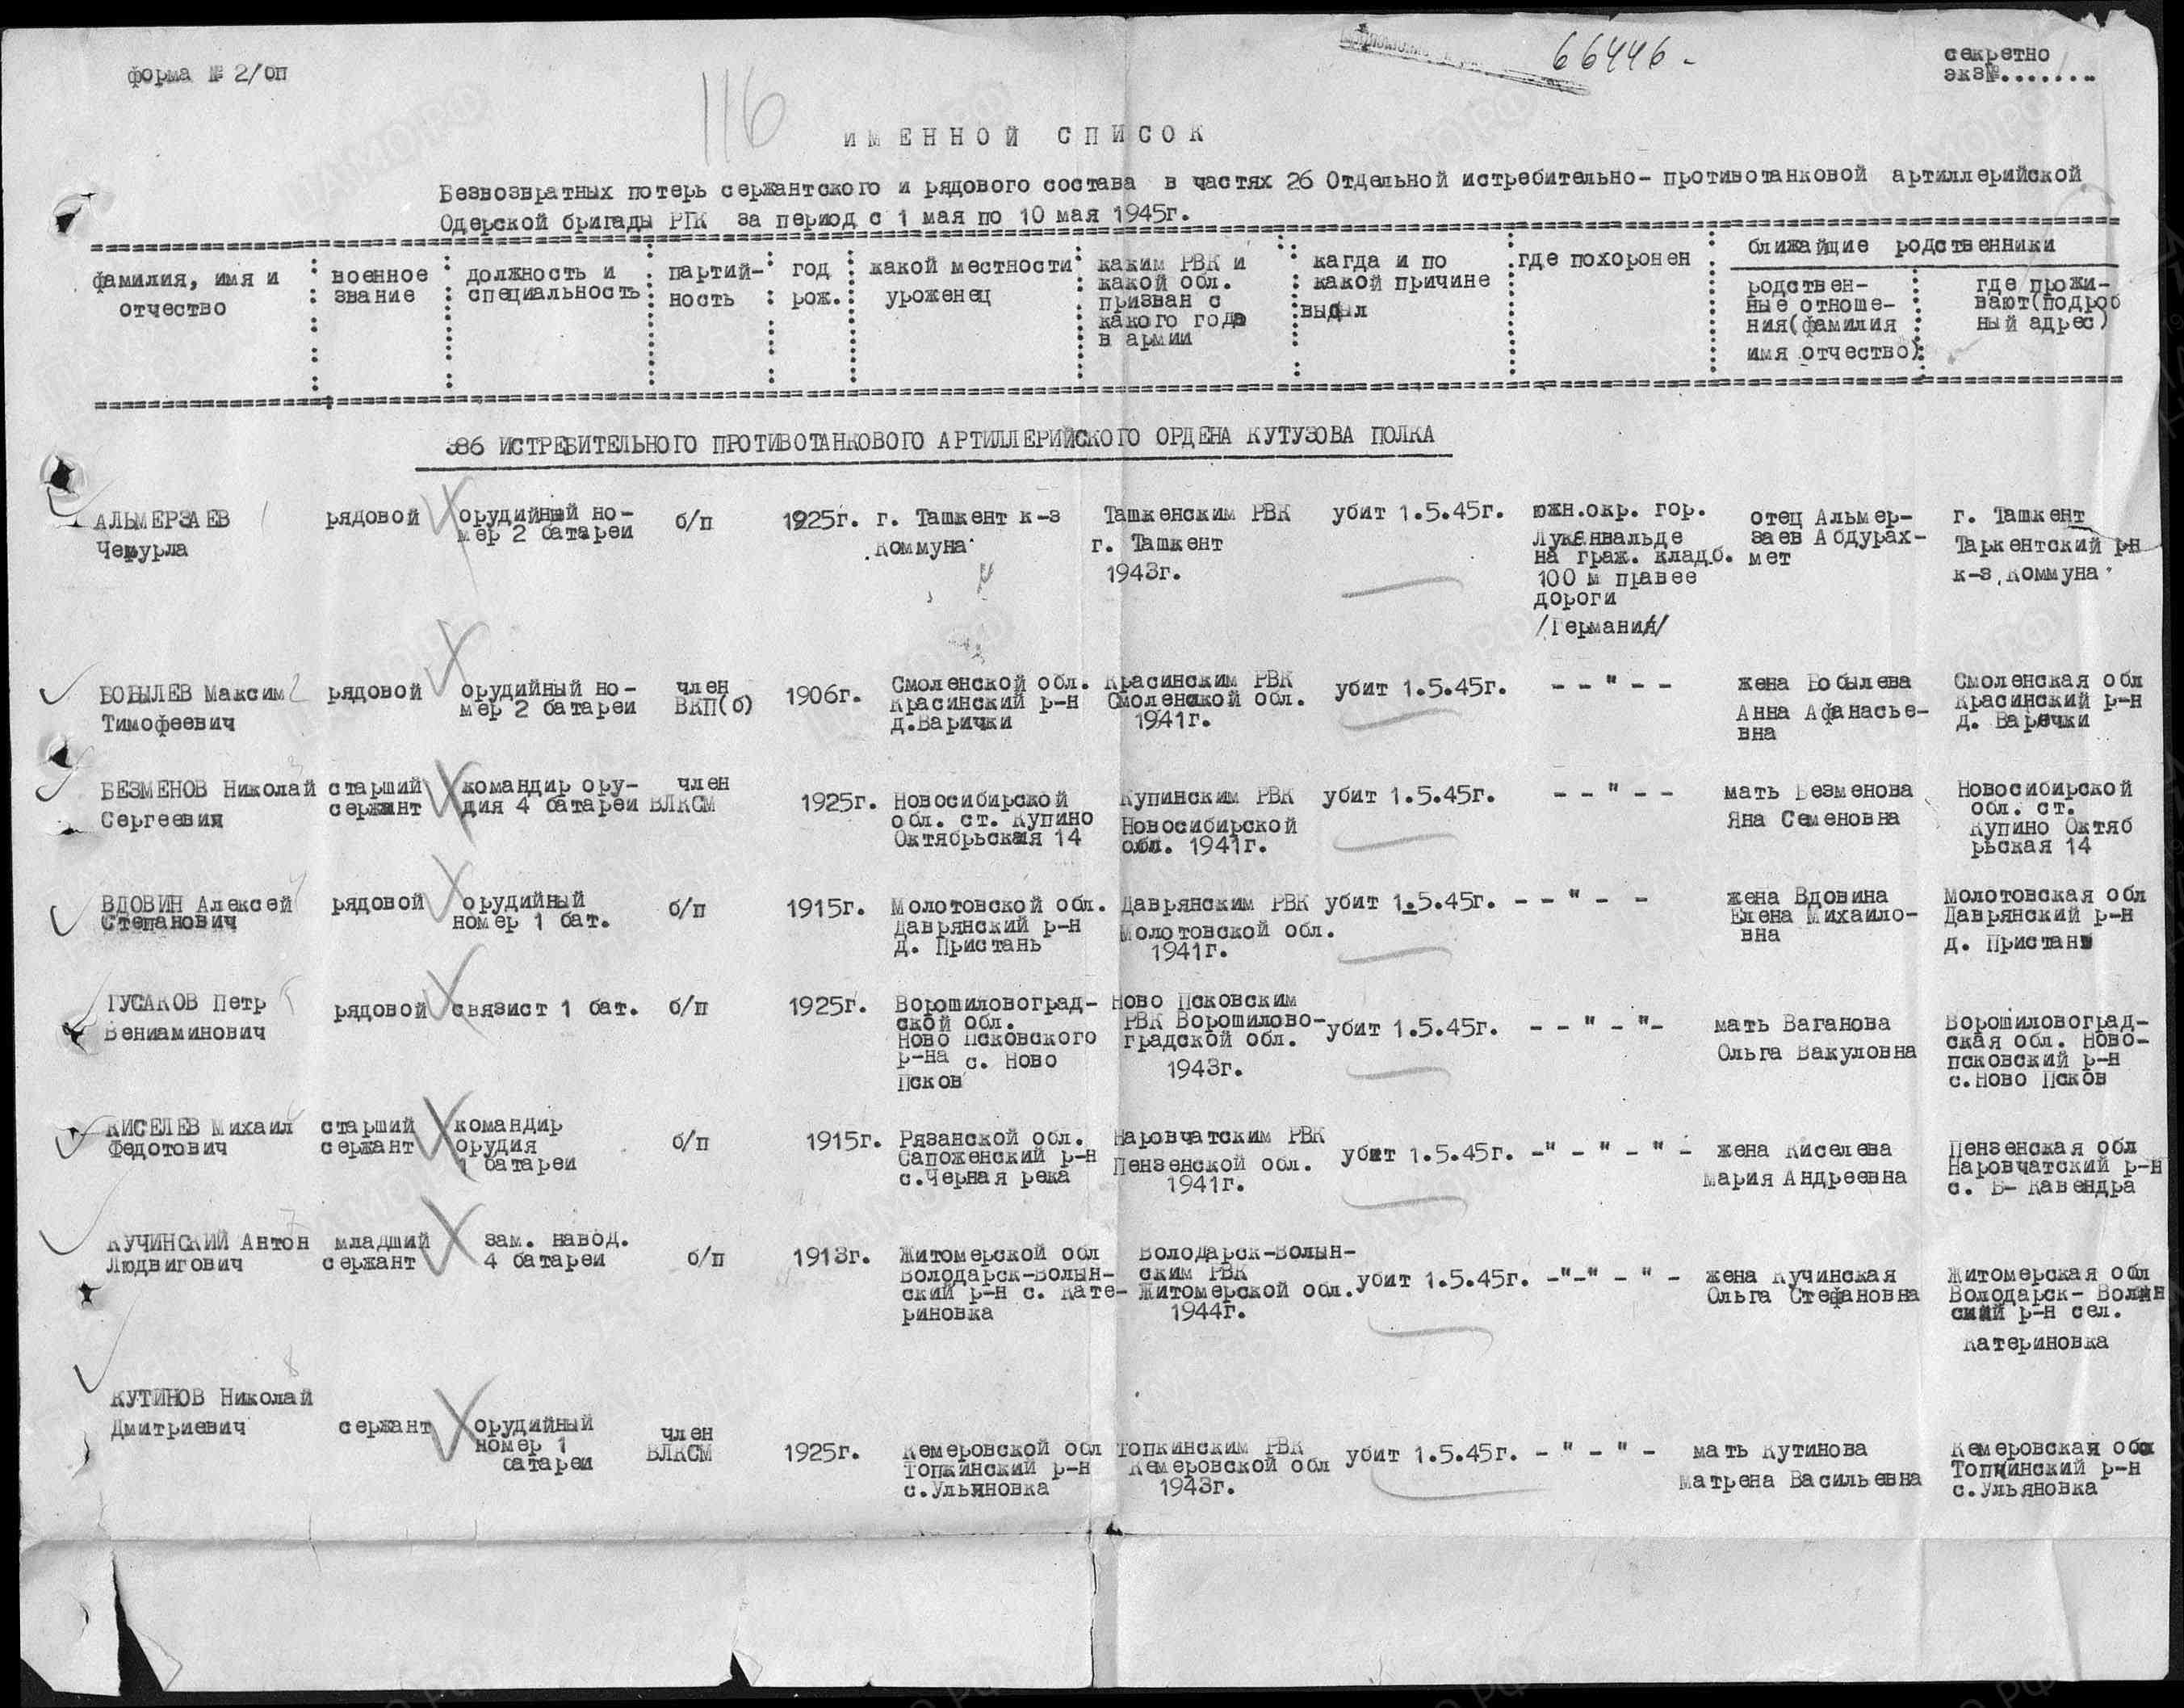 форма № 2/оп
116
66446 -
секретно
экз№........
ИМЕННОЙ СПИСОК
Безвозвратных потерь сержантского и рядового состава в частях 26 Отдельной истребительно- противотанковой артиллерийской
Одерской бригады РГК за период с 1 мая по 10 мая 1945г.
фамилия, имя и
отчество
военное
звание
должность и
специальность
партий-
ность
год
рож.
какой местности
уроженец
каким РВК и
какой обл.
призван с
какого года
в армии
кагда и по
какой причине
выбыл
где похоронен
ближайщие родственники
родствен-
ные отноше-
ния(фамилия
имя отчество)
где прожи-
вают(подроб
ный адрес)
386 ИСТРЕБИТЕЛЬНОГО ПРОТИВОТАНКОВОГО АРТИЛЛЕРИЙСКОГО ОРДЕНА КУТУЗОВА ПОЛКА
АЛЬМЕРЗАЕВ
Чемурла
рядовой
орудийный но-
мер 2 батареи
б/п
1925г.
г. Ташкент к-з
"Коммуна"
Ташкенским РВК
г. Ташкент
1943г.
убит 1.5.45г.
южн.окр. гор.
Лукенвальде
на граж. кладб.
100 м правее
дороги
/Германия/
отец Альмер-
заев Абдурах-
мет
г. Ташкент
Таркентский р-н
к-з "Коммуна"
БОБЫЛЕВ Максим 2
Тимофеевич
рядовой
орудийный но-
мер 2 батареи
член
ВКП(б)
1906г.
Смоленской обл.
Красинский р-н
д.Варички
Красинским РВК
Смоленской обл.
1941г.
убит 1.5.45г.
- - " - -
жена Бобылева
Анна Афанасье-
вна
Смоленская обл
Красинский р-н
д. Варечки
БЕЗМЕНОВ Николай
Сергеевич
старший
сержант
командир ору-
дия 4 батареи
член
ВЛКСМ
1925г.
Новосибирской
обл. ст. Купино
Октябрьская 14
Купинским РВК
Новосибирской
обл. 1941г.
убит 1.5.45г.
- - " - -
мать Безменова
Яна Семеновна
Новосибирской
обл. ст.
Купино Октяб
рьская 14
ВДОВИН Алексей
Степанович
рядовой
орудийный
номер 1 бат.
б/п
1915г.
Молотовской обл.
Даврянский р-н
д. Пристань
Даврянским РВК
Молотовской обл.
1941г.
убит 1.5.45г.
- - " - -
жена Вдовина
Елена Михаило-
вна
Молотовская обл
Даврянский р-н
д. Пристань
ГУСАКОВ Петр
Вениаминович
рядовой
связист 1 бат.
б/п
1925г.
Ворошиловоград-
ской обл.
Ново Псковского
р-на с. Ново
Псков
Ново Псковским
РВК Ворошилово-
градской обл.
1943г.
убит 1.5.45г.
- - " - "-
мать Ваганова
Ольга Вакуловна
Ворошиловоград-
ская обл. Ново-
псковский р-н
с.Ново Псков
КИСЕЛЕВ Михаил
Федотович
старший
сержант
командир
орудия
1 батареи
б/п
1915г.
Рязанской обл.
Сапоженский р-н
с.Черная река
Наровчатским РВК
Пензенской обл.
1941г.
убит 1.5.45г.
-" - " - " -
жена Киселева
Мария Андреевна
Пензенская обл
Наровчатский р-н
с. Б- Кавендра
КУЧИНСКИЙ Антон
Людвигович
младший
сержант
зам. навод.
4 батареи
б/п
1913г.
Житомерской обл
Володарск-Волын-
ский р-н с. Кате-
риновка
Володарск-Волын-
ским РВК
Житомерской обл.
1944г.
убит 1.5.45г.
-"-" - " -
жена Кучинская
Ольга Стефановна
Житомерская обл
Володарск- Волын
ский р-н сел.
Катериновка
8
КУТИНОВ Николай
Дмитриевич
сержант
орудийный
номер 1
батареи
член
ВЛКСМ
1925г.
Кемеровской обл
Топкинский р-н
с.Ульяновка
Топкинским РВК
Кемеровской обл
1943г.
убит 1.5.45г.
- " - " -
мать Кутинова
Матрена Васильевна
Кемеровская обл
Топчинский р-н
с.Ульяновка